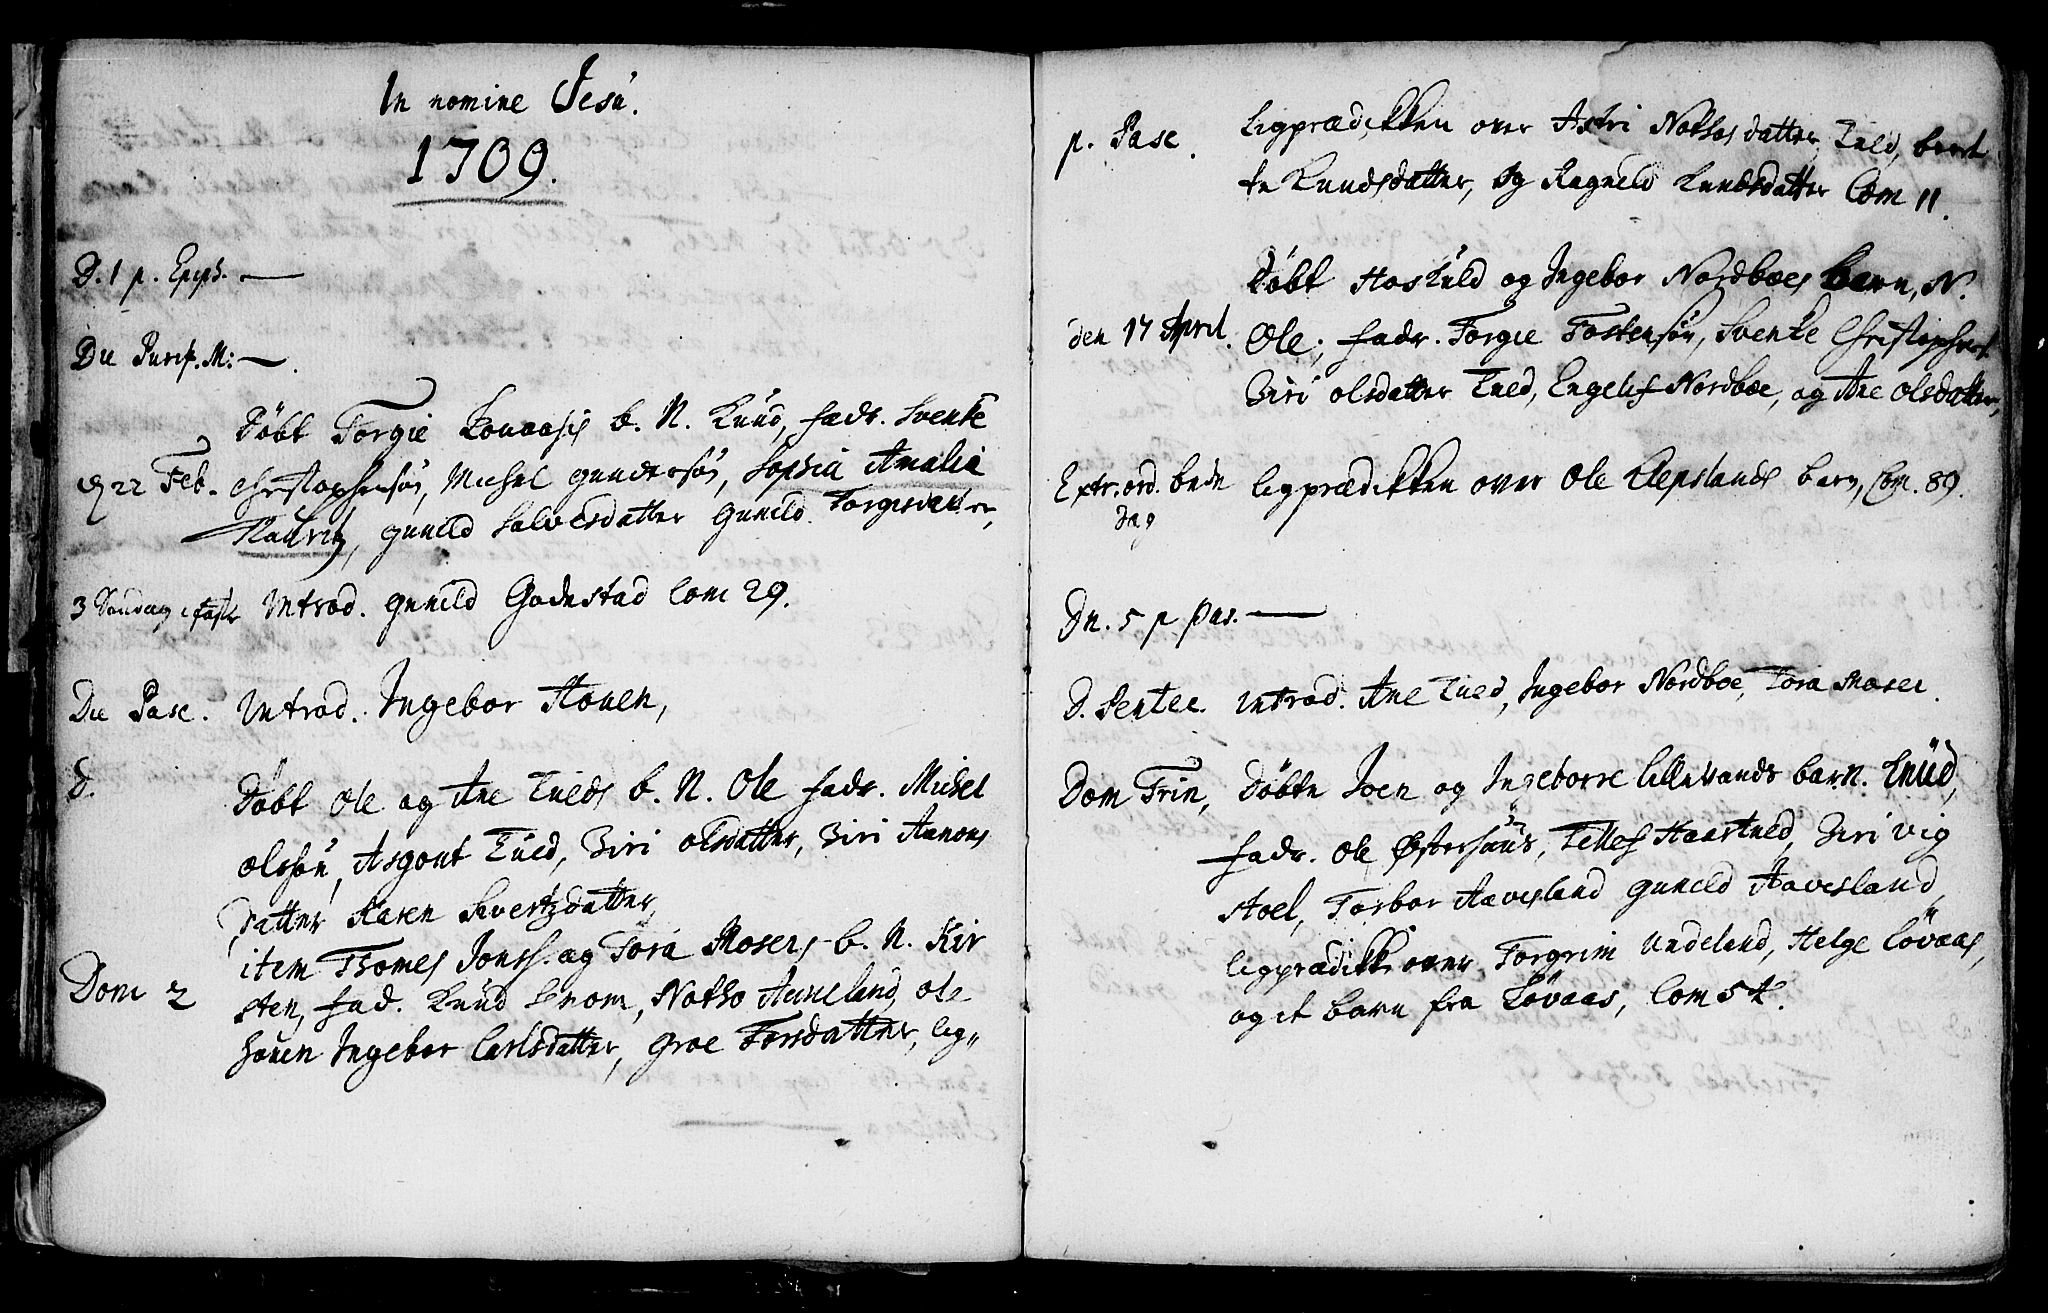 In nomine Jesu.
1709.
D. 1 p. Epiph. —
Du Purif. M: —.
Døbt Torgie b. N. Knud, fadr. Svenke
22 Feb. Christophersøn, Michel Gundersøn, Sophia Amalia
Mauritz, Gunild Salvesdatter Gunild Torgisdatter,
3 Søndag i fast Introd. Gunild Godestad Com 29.
Du Pasc. Introd. Ingebor Houen,
D. Døbt Ole og Ane Tveds b. N. Ole fadr. Michel
Olssøn, Asgout Tved, Siri Olsdatter, Siri Aanons
datter Karen Sivertzdatter,
item Thomes Jonss. og Tora Moseis b. N. Kir
Dom 2 sten, fad. Knud , Notho Aaneland, Ole
Houen Ingebor Carlsdatter, Groe Torsdatter, lig"
p. Pasc. ligprædikken over Astri Nothosdatter, Tved, beret
te Knudsdatter, og Ragnild Knudsdatter Com 11.
Døbt Hoskuld og Ingebor Nordboes barn, N.
den 17 April. Ole; fadr. Torgie Tostensøn, Svenke Christophers.
Siri Olsdatter Tved, Engelef Nordboe, og Ane Olsdatter,
Extr. ord. bede ligprædikken over Ole Clepslands barn, Com. 89.
dag
Dn. 5 p pas. —
D. Pentec. Introd. Ane Tved, Ingebor Nordboe, Tora Mosei.
Dom Trin, Døbte Joen og Ingeborre Lillesands bar. N. Knud,
fadr. Ole Østerhuus, Tellef Haastved, Siri Vig
stoel, Torbor Aavesland Gunild Aavesland,
ligprædikk. over Torgrim Undeland, Helge Løvaas,
og it barn fra Løvaas, Com 54.